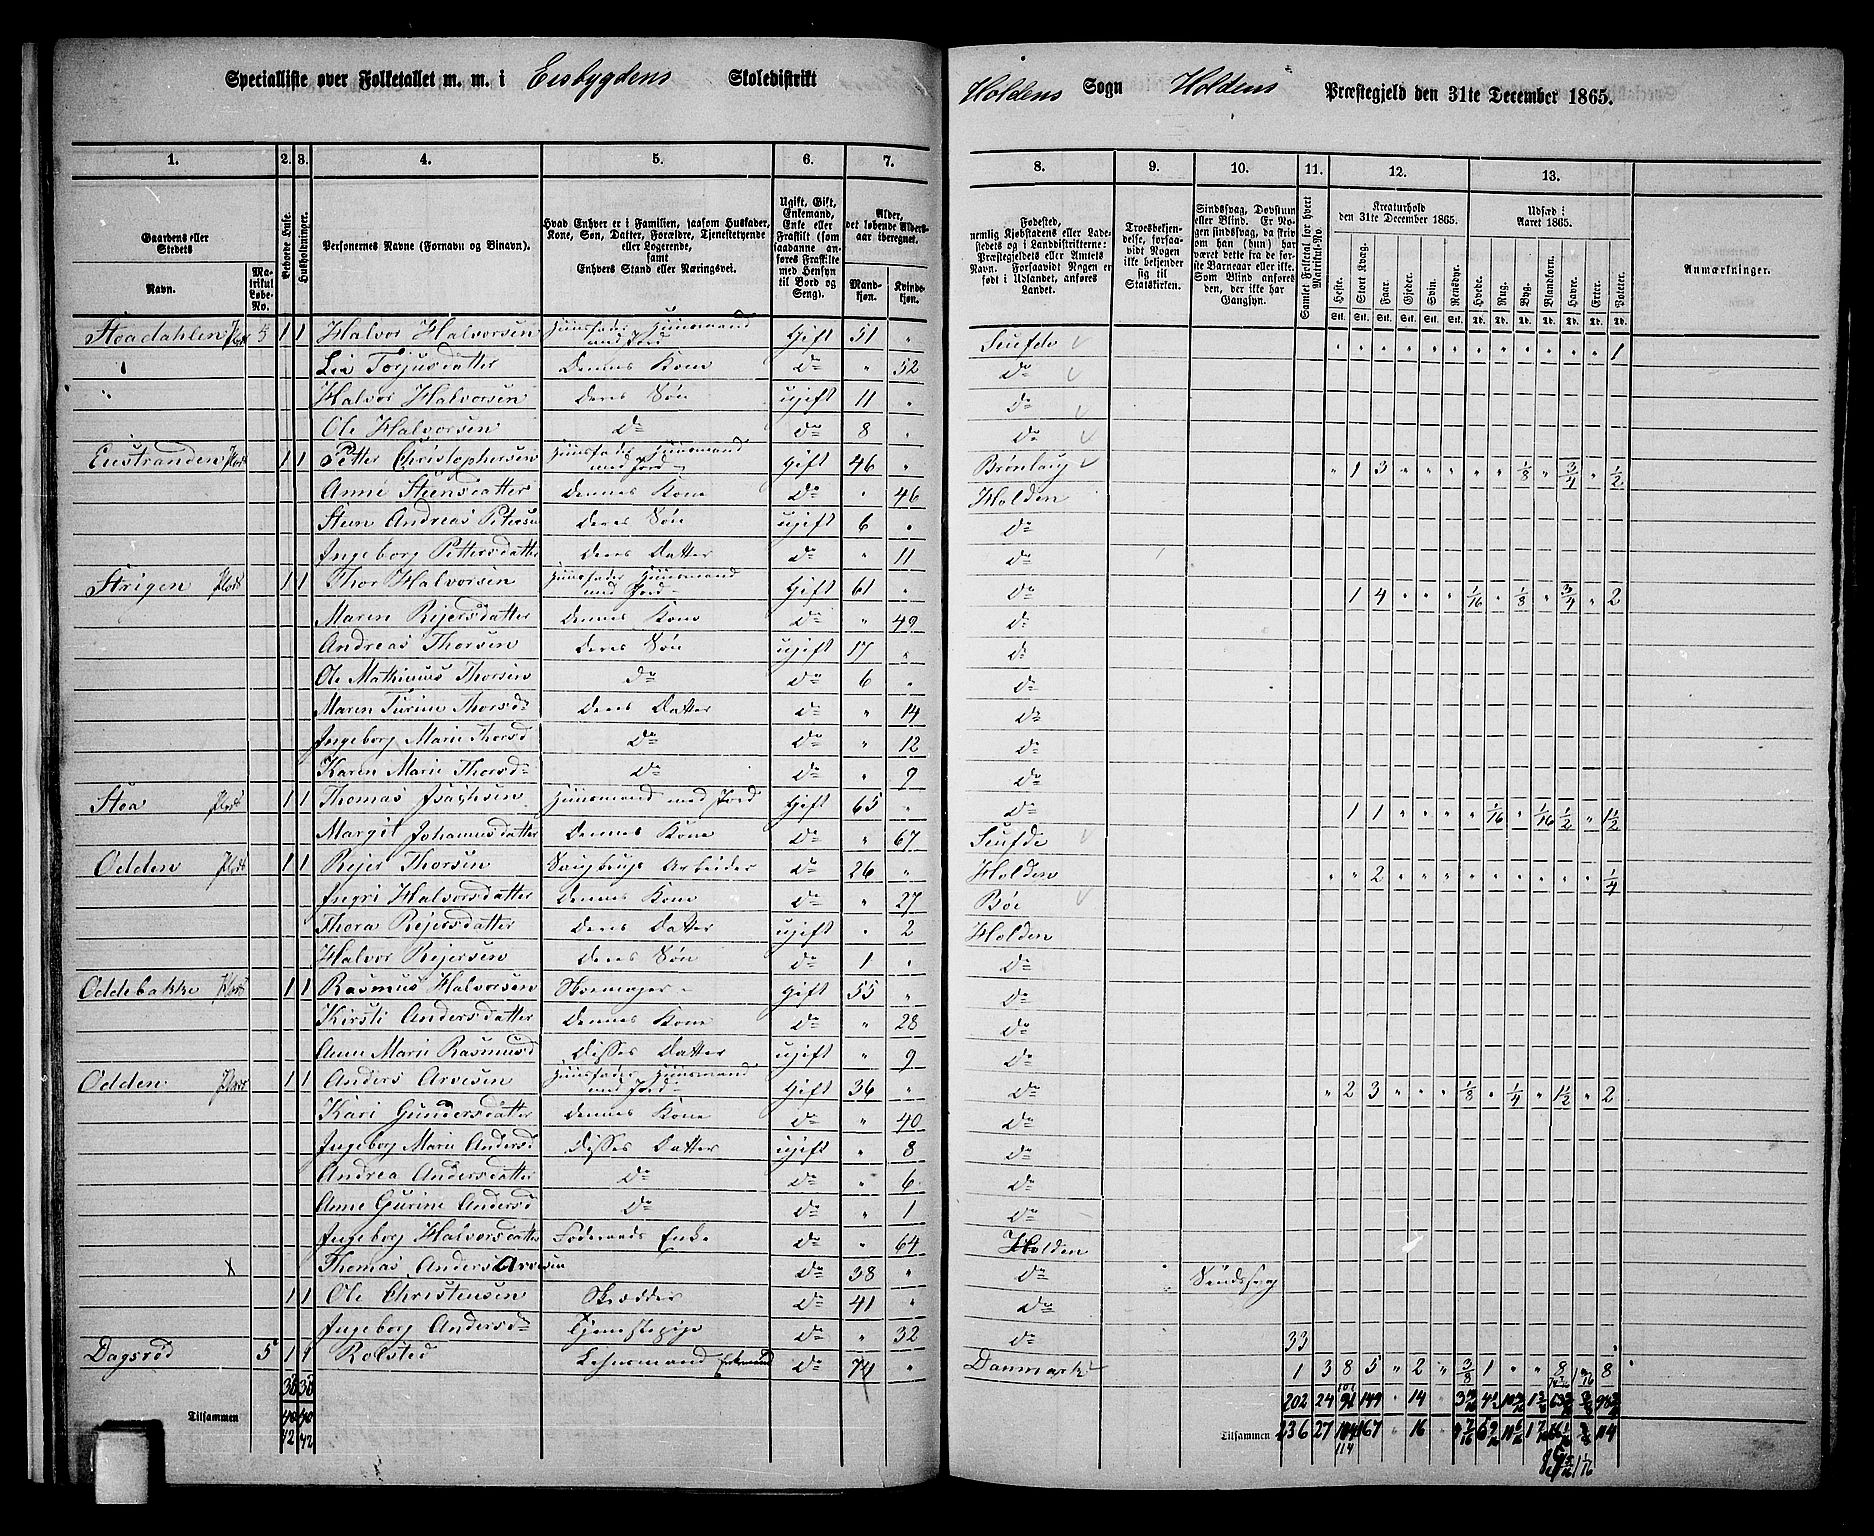 Specialliste over Folketallet m. m. i Eisbygdens Skoledistrikt
Holdens Sogn Holdens Præstegjeld den 31te December 1865.
1. 2. 3. 4. 5. 6. 7.
8. 9. 10. 11. 12. 13.
Gaardens eller Stedets
Navn.
Matrikul Løbe-No.
Beboede Huse.
Husholdninger.
Personernes Navne (Fornavn og Binavn).
Hvad Enhver er i Familien, saasom Husfader, Kone, Søn, Datter, Forældre, Tjenestetyende eller Logerende, samt Enhvers Stand eller Næringsvei.
Ugift, Gift, Enkemand, Enke eller Fraskilt (som saadanne anføres Fraskilte med Hensyn til Bord og Seng).
Alder, det løbende Alders-aar iberegnet.
Mandkjøn.
Kvindekjøn.
Fødested, nemlig Kjøbstadens eller Ladestedets og i Landdistrikterne: Præstegjeldets eller Amtets Navn. Forsaavidt Nogen er født i Udlandet, anføres Landet.
Troesbekjendelse, forsaavidt Nogen ikke bekjender sig til Statskirken.
Sindssvag, Døvstum eller Blind. Er Nogen sindssvag, da skriv om han (hun) har været dette fra første Barneaar eller ikke. Som Blind anføres den, der ikke har Gangsyn.
Samlet Folketal for hvert Matrikul-No.
Kreaturhold den 31te December 1865.
Heste. Stort Kvæg. Faar. Gjeder. Svin. Rensdyr.
Udsæd i Aaret 1865.
Hvede. Rug. Byg. Blandkorn. Havre. Erter. Poteter.
Anmærkninger.
Stoadahlen Plads 5 1 1 Halvor Halvorsen Huusfader Huusmand med Jord Gift 51 " Seufde 1
Liv Torjusdatter Dennes Kone do " 52 do
Halvor Halvorsen Deres Søn ugift 11 " do
Ole Halvorsen do do 8 " do
Enstranden Plads 1 1 Petter Christophersen Huusfader Huusmand med Jord Gift 46 " Brønlaug " 1 3 " " " " " 1/8 " 3/4 " 1/2
Anne Steensdatter Dennes Kone do " 46 Holden
Steen Andreas Petersen Deres Søn ugift 6 " do
Ingeborg Pettersdatter Deres Datter do " 11 do
Strigen Plads 1 1 Thor Halvorsen Huusfader Huusmand med Jord Gift 61 " do 1 4 " " " 1/16 " 1/8 " 3/4 " 2
Maren Rejersdatter Dennes Kone do " 49 do
Andreas Thorsen Deres Søn ugift 17 " do
Ole Mathinus Thorsen do do 6 " do
Maren Turine Thorsd Deres Datter do " 14 do
Ingeborg Marie Thorsd do do " 12 do
Karen Marie Thorsd do do " 9 do
Stoa Plads 1 1 Thomas Isachsen Huusmand med Jord Gift 65 " do 1 1 " " " " 1/16 " 1/16 1/2 " 1 1/2
Margit Johannesdatter Dennes Kone do " 67 Seufde
Odden Plads 1 1 Rejer Thorsen Arbeider do 26 " Holden " " 2 " " " " " " " " " 1/4
Ingri Halvorsdatter Dennes Kone do " 27 Bøe
Thora Rejersdatter Deres Datter ugift " 2 Holden
Halvor Rejersen Deres Søn do 1 " do
Oddebakke Plads 1 1 Rasmus Halvorsen Skomager Gift 55 " do
Kirsti Andersdatter Dennes Kone do " 28 do
Anne Marie Rasmusd Disses Datter ugift " 9 do
Odden Plads 1 1 Anders Arvesen Huusfader Huusmand med Jord Gift 36 " do " 2 3 " " " 1/8 " 1/4 " 1 1/2 " 2
Kari Gundersdatter Dennes Kone do " 40 do
Ingeborg Marie Andersd Disses Datter ugift " 8 do
Andrea Andersdatter do do " 6 do
Anne Gurine Andersd do do " 1 do
Ingeborg Halvorsdatter Foderaads Enke do " 64 Holden
x Thomas Anders Arvesen do 38 " do Sindssvag
1 1 Ole Christensen Skrædder do 41 " do
Ingeborg Andersd Tjenestepige do " 32 do 33
Dagsrød 5 1 1 Rolsted Lehnsmand Enkemand do 71 " Danmark 1 3 8 5 " 2 " 3/8 1 " " 8 8
38 38
Tilsammen 40 40
42 42
202 24 149 14
Tilsammen 236 27 104 167 " 16 " 114
114